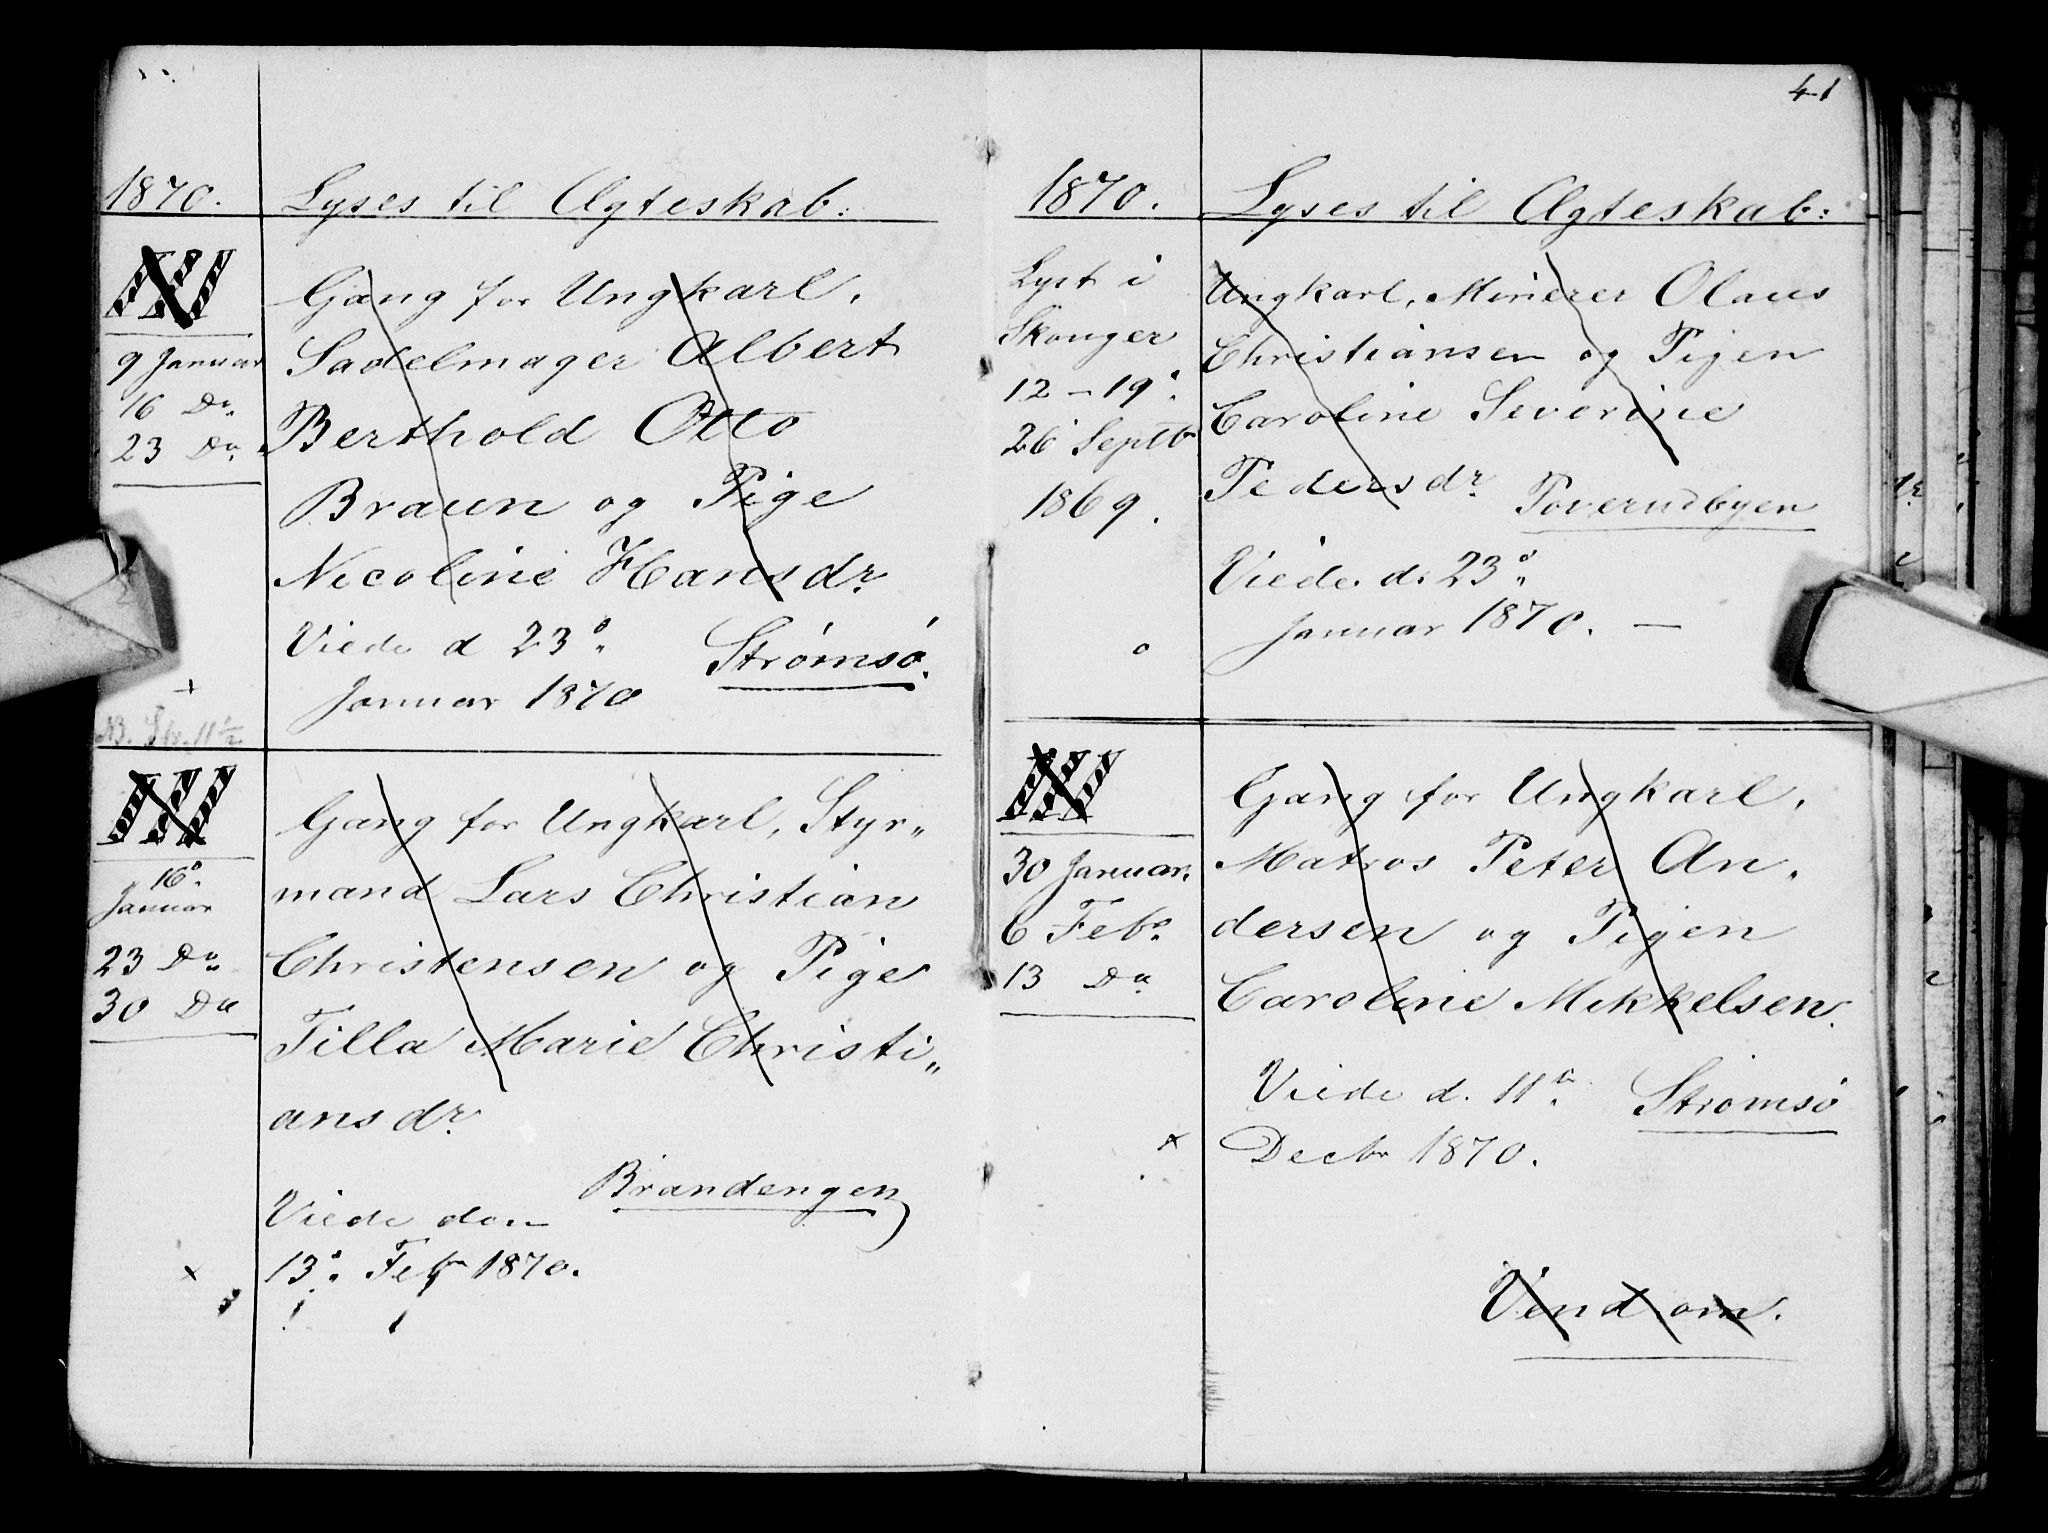 1870.
Lyses til Ægteskab:
9 Januar
16 Do.
23 Do.
Gang for Ungkarl,
Sadelmager Albert
Berthold Otto
Braun og Pige
Nicoline Hansdr.
Viede d 23de Strømsø.
Januar 1870
16de
Januar
23 Do
30 Do
Gang for Ungkarl, Styr„
mand Lars Christian
Christensen og Pige
Tilla Marie Christi„
ansdr.
Brandengen
Viede den
13de Feb 1870.
41
1870.
Lyses til Ægteskab:
Lyst i
Skouger
12 – 19
26 Septb
1869.
Ungkarl, Minerer Olaus
Christiansen og Pigen
Caroline Severine
Pedersdr. Toverudbyen
Viede d. 23de
Januar 1870. —
30 Januar.
6 Feb.
13 Do
Gang for Ungkarl,
Matros Peter An„
dersen og Pigen
Caroline Mikkelsen.
Viede d. 11te Strømsø
Decbr 1870.
Vend om.